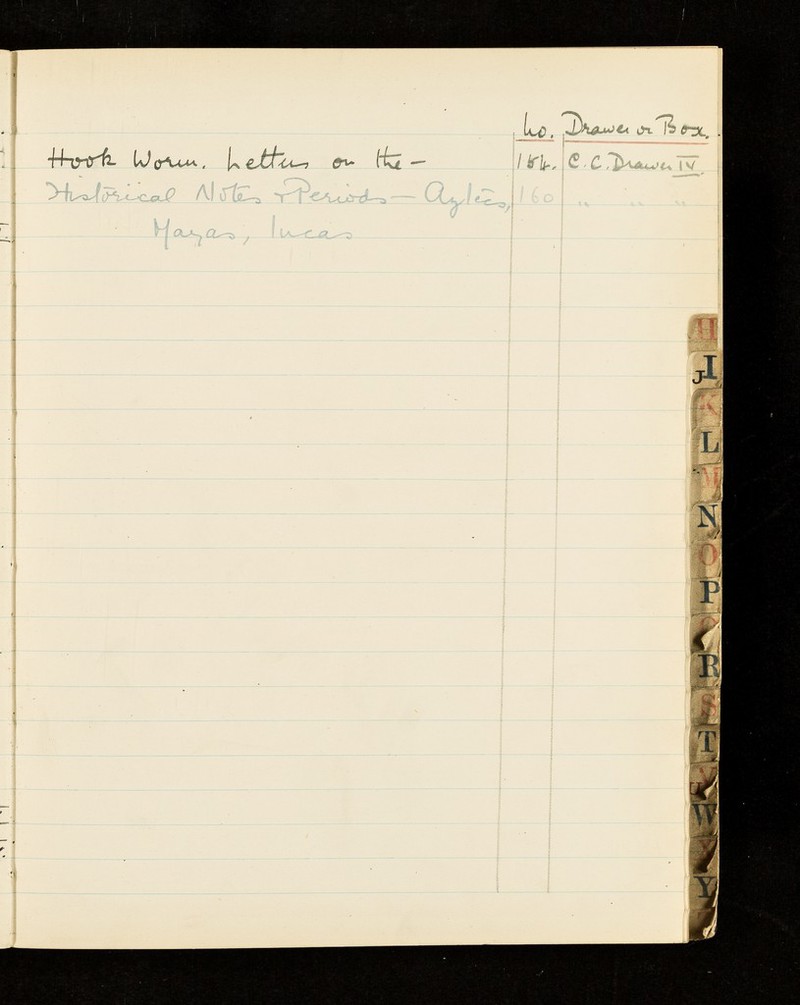 No. Drawer or Box.
Hook Worm. Letters on the — 154. C.C. Drawer IV.
Historical Notes & Periods — Aztecs, 160 " " "
Mayas, Incas
H
I
J
K
L
M
N
O
P
R
S
T
V
W
Y